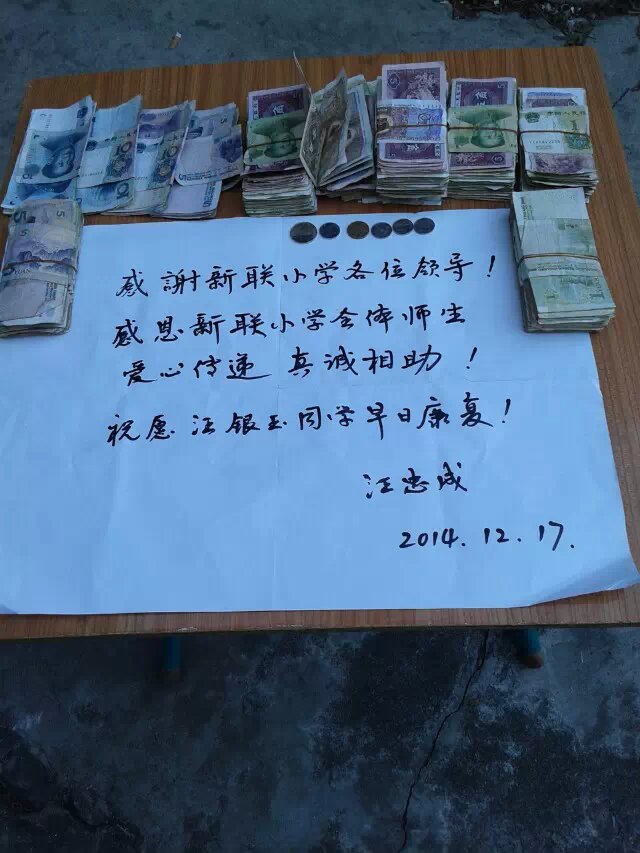 感謝新联小学各位领导！
感恩新联小学全体师生
爱心传递 真诚相助！
祝愿汪银玉同学早日康复！
汪忠成
2014.12.17.